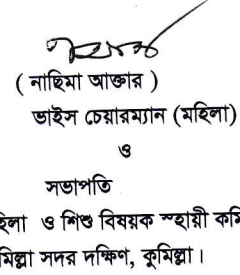 ( নাছিমা আক্তার )
ভাইস চেয়ারম্যান (মহিলা)
ও
সভাপতি
ও শিশু বিষয়ক স্হায়ী
সদর দক্ষিণ, কুমিল্লা।